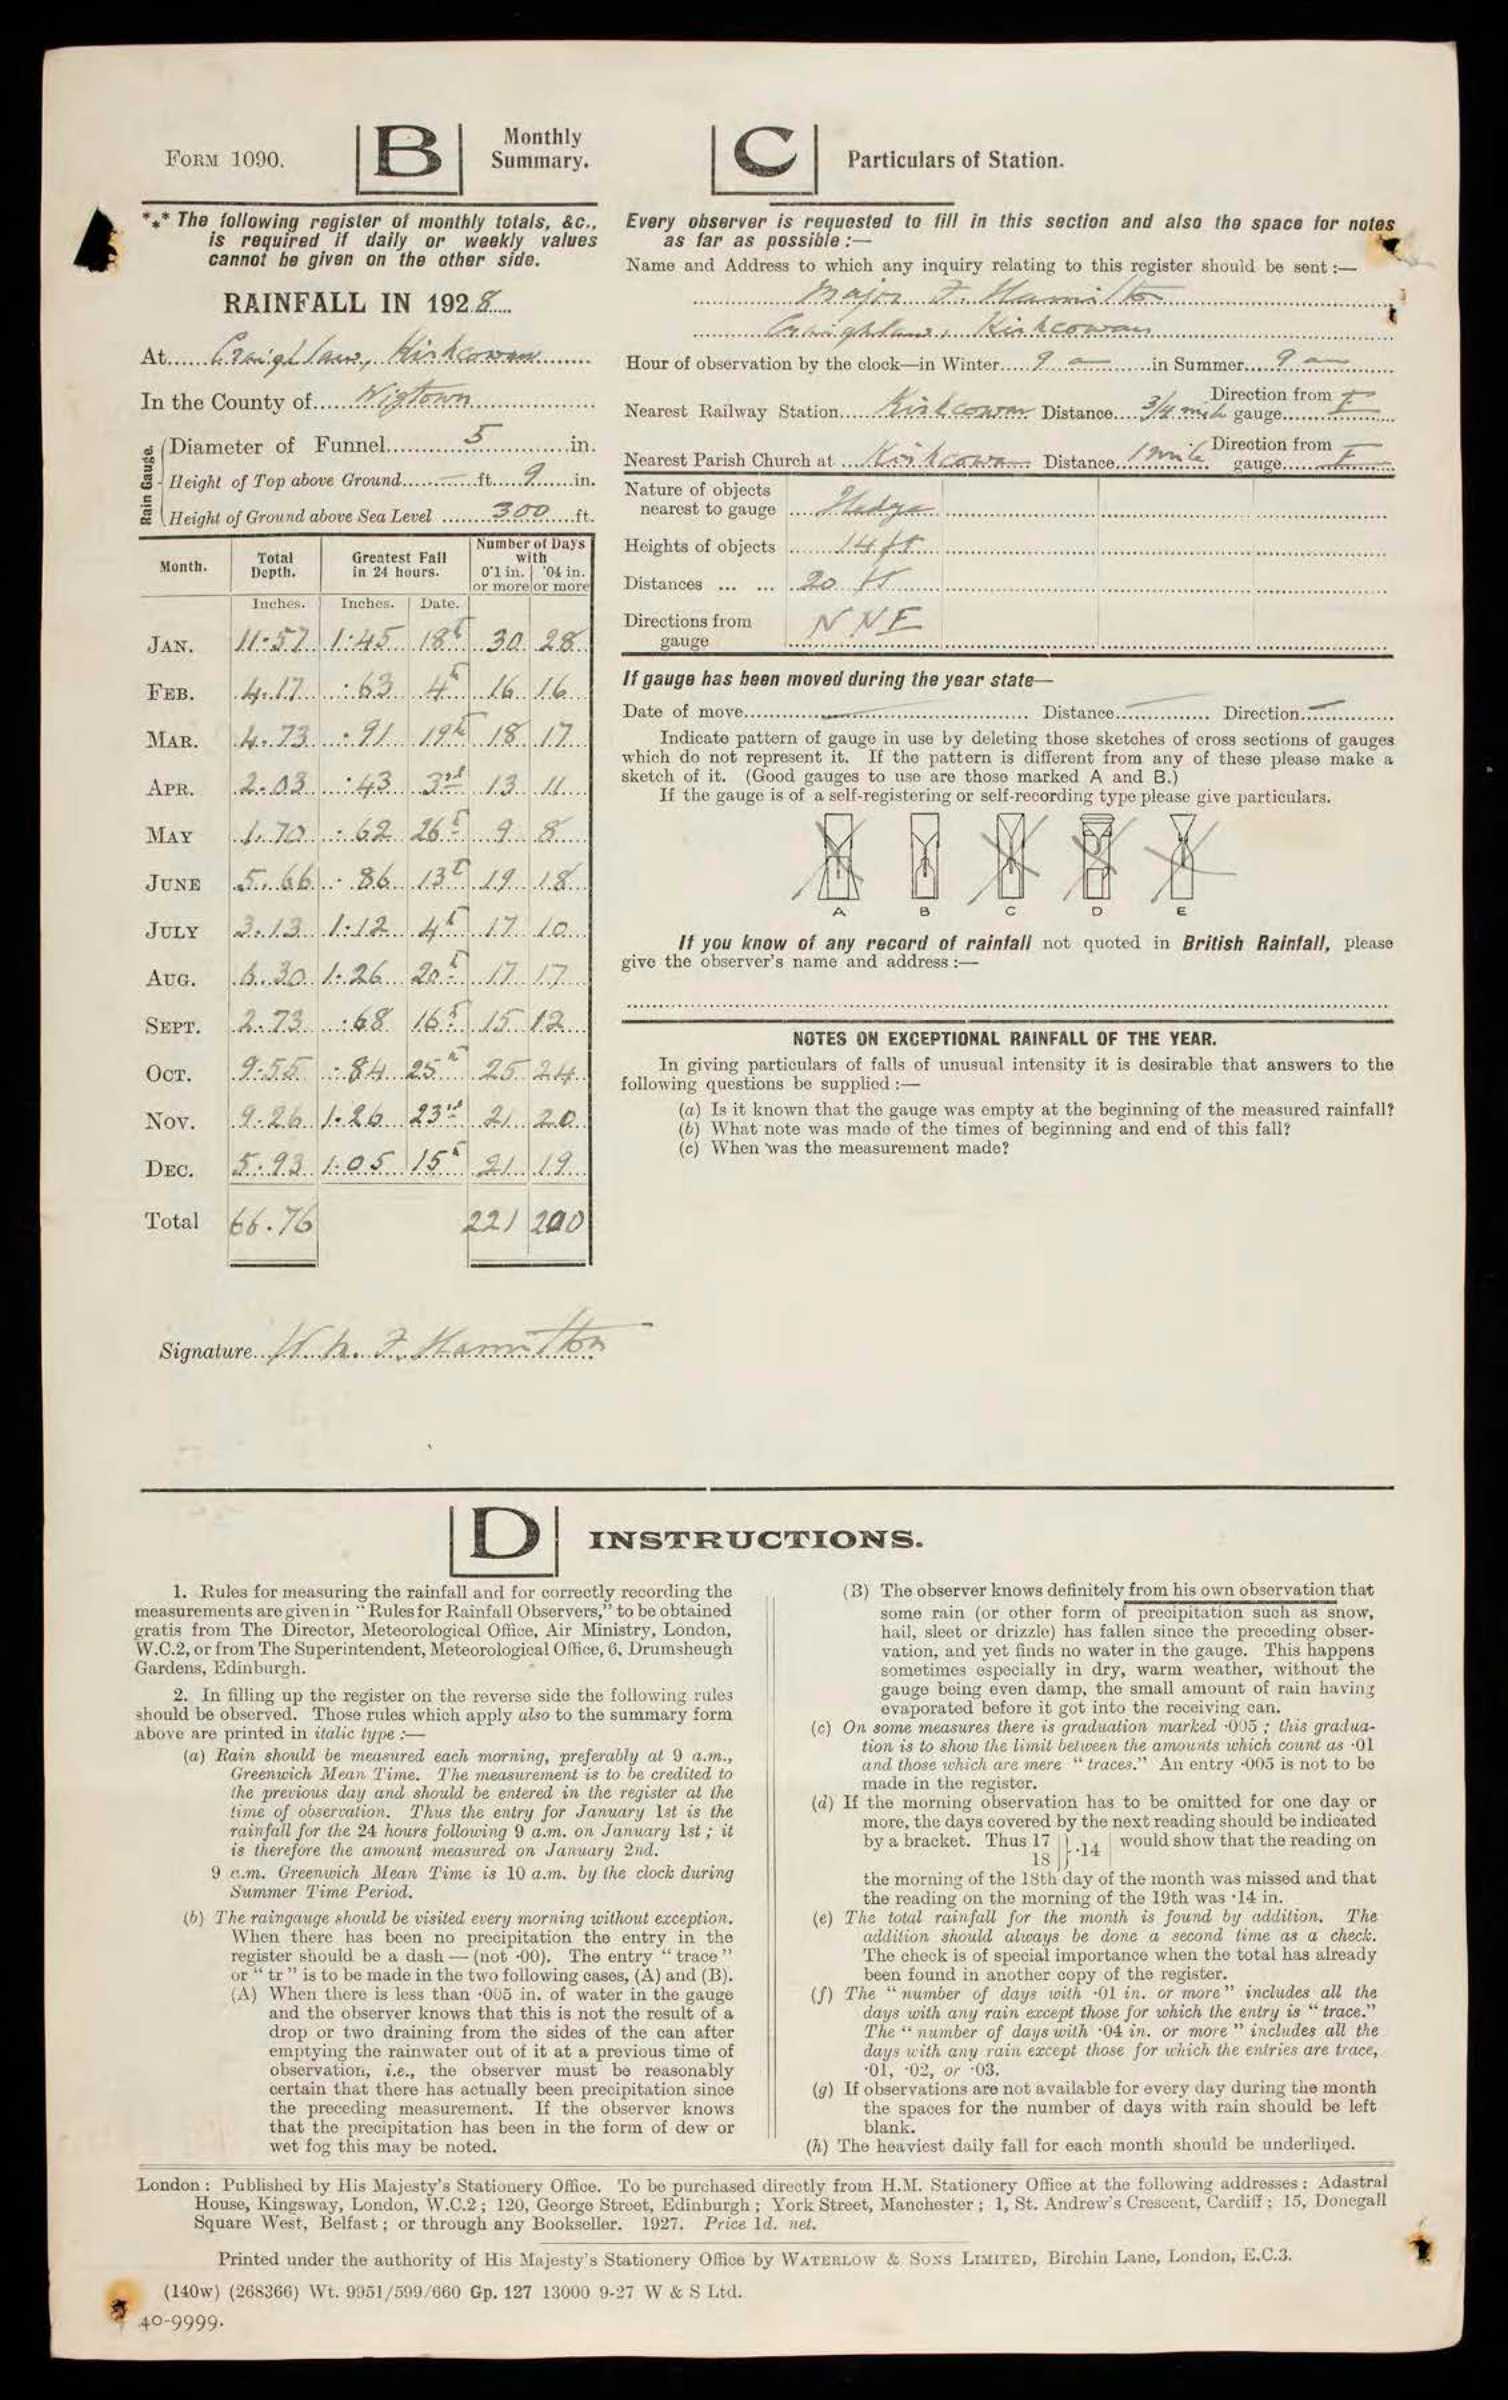 FORM 1090.
B
Monthly
Summary.
*⁎* The following register of monthly totals, &c.,
is required if daily or weekly values
cannot be given on the other side.
RAINFALL IN 1928
At Craighlaw, Kirkcowan
In the County of Wigtown
Rain Gauge.
Diameter of Funnel 5 in.
Height of Top above Ground — ft. 9 in.
Height of Ground above Sea Level 300 ft.
Month. Total Depth. Greatest Fall in 24 hours. Number of Days with
0·1 in. or more ·04 in. or more
Inches. Inches. Date.
JAN. 11·57 1·45 18th 30 28
FEB. 4.17 ·63 4th 16 16
MAR. 4.73 ·91 19th 18 17
APR. 2.03 ·43 3rd 13 11
MAY 1.70 ·62 26th 9 8
JUNE 5.66 ·86 13th 19 18
JULY 3.13 1·12 4th 17 10
AUG. 6.30 1·26 20th 17 17
SEPT. 2.73 ·68 16th 15 12
OCT. 9.55 ·84 25th 25 24
NOV. 9.26 1.26 23rd 21 20
DEC. 5.93 1.05 15th 21 19
Total 66.76 221 200
Signature Wm. F. Hamilton
C
Particulars of Station.
Every observer is requested to fill in this section and also the space for notes
as far as possible :—
Name and Address to which any inquiry relating to this register should be sent :—
Major F. Hamilton
Craighlaw, Kirkcowan
Hour of observation by the clock—in Winter 9 a in Summer 9 a
Nearest Railway Station Kirkcowan Distance 3/4 mile Direction from gauge E
Nearest Parish Church at Kirkcowan Distance 1 mile Direction from gauge E
Nature of objects
nearest to gauge Hedge
Heights of objects 14 ft
Distances ... ... 20 ft
Directions from
gauge NNE
If gauge has been moved during the year state—
Date of move — Distance — Direction —
Indicate pattern of gauge in use by deleting those sketches of cross sections of gauges
which do not represent it. If the pattern is different from any of these please make a
sketch of it. (Good gauges to use are those marked A and B.)
If the gauge is of a self-registering or self-recording type please give particulars.
A B C D E
If you know of any record of rainfall not quoted in British Rainfall, please
give the observer's name and address :—
NOTES ON EXCEPTIONAL RAINFALL OF THE YEAR.
In giving particulars of falls of unusual intensity it is desirable that answers to the
following questions be supplied :—
(a) Is it known that the gauge was empty at the beginning of the measured rainfall?
(b) What note was made of the times of beginning and end of this fall?
(c) When was the measurement made?
D
INSTRUCTIONS.
1. Rules for measuring the rainfall and for correctly recording the
measurements are given in "Rules for Rainfall Observers," to be obtained
gratis from The Director, Meteorological Office, Air Ministry, London,
W.C.2, or from The Superintendent, Meteorological Office, 6, Drumsheugh
Gardens, Edinburgh.
2. In filling up the register on the reverse side the following rules
should be observed. Those rules which apply also to the summary form
above are printed in italic type :—
(a) Rain should be measured each morning, preferably at 9 a.m.,
Greenwich Mean Time. The measurement is to be credited to
the previous day and should be entered in the register at the
time of observation. Thus the entry for January 1st is the
rainfall for the 24 hours following 9 a.m. on January 1st ; it
is therefore the amount measured on January 2nd.
9 a.m. Greenwich Mean Time is 10 a.m. by the clock during
Summer Time Period.
(b) The raingauge should be visited every morning without exception.
When there has been no precipitation the entry in the
register should be a dash — (not ·00). The entry "trace"
or "tr" is to be made in the two following cases, (A) and (B).
(A) When there is less than ·005 in. of water in the gauge
and the observer knows that this is not the result of a
drop or two draining from the sides of the can after
emptying the rainwater out of it at a previous time of
observation, i.e., the observer must be reasonably
certain that there has actually been precipitation since
the preceding measurement. If the observer knows
that the precipitation has been in the form of dew or
wet fog this may be noted.
(B) The observer knows definitely from his own observation that
some rain (or other form of precipitation such as snow,
hail, sleet or drizzle) has fallen since the preceding obser-
vation, and yet finds no water in the gauge. This happens
sometimes especially in dry, warm weather, without the
gauge being even damp, the small amount of rain having
evaporated before it got into the receiving can.
(c) On some measures there is graduation marked ·005 ; this gradua-
tion is to show the limit between the amounts which count as ·01
and those which are mere "traces." An entry ·005 is not to be
made in the register.
(d) If the morning observation has to be omitted for one day or
more, the days covered by the next reading should be indicated
by a bracket. Thus 17 } ·14 would show that the reading on
18
the morning of the 18th day of the month was missed and that
the reading on the morning of the 19th was ·14 in.
(e) The total rainfall for the month is found by addition. The
addition should always be done a second time as a check.
The check is of special importance when the total has already
been found in another copy of the register.
(f) The "number of days with ·01 in. or more" includes all the
days with any rain except those for which the entry is "trace."
The "number of days with ·04 in. or more" includes all the
days with any rain except those for which the entries are trace,
·01, ·02, or ·03.
(g) If observations are not available for every day during the month
the spaces for the number of days with rain should be left
blank.
(h) The heaviest daily fall for each month should be underlined.
London : Published by His Majesty's Stationery Office. To be purchased directly from H.M. Stationery Office at the following addresses : Adastral
House, Kingsway, London, W.C.2 ; 120, George Street, Edinburgh ; York Street, Manchester ; 1, St. Andrew's Crescent, Cardiff ; 15, Donegall
Square West, Belfast ; or through any Bookseller. 1927. Price 1d. net.
Printed under the authority of His Majesty's Stationery Office by WATERLOW & SONS LIMITED, Birchin Lane, London, E.C.3.
(140w) (268366) Wt. 9951/599/660 Gp. 127 13000 9-27 W & S Ltd.
40-9999.